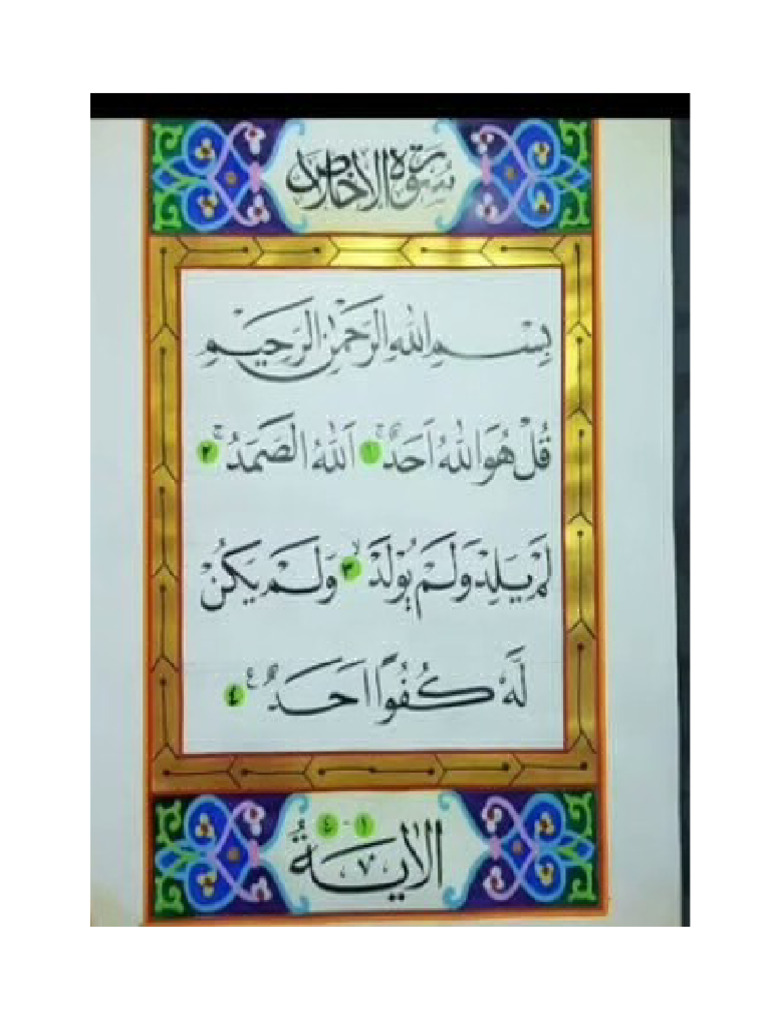 سُورَةُ الإخلاص
بِسْمِ اللهِ الرَّحْمٰنِ الرَّحِيْمِ
قُلْ هُوَ اللهُ اَحَدٌۚ ١ اَللهُ الصَّمَدُۚ ٢
لَمْ يَلِدْ وَلَمْ يُوْلَدْۙ ٣ وَلَمْ يَكُنْ
لَّهٗ كُفُوًا اَحَدٌ ࣖ ٤
١ - ٤
الاٰيَةُ